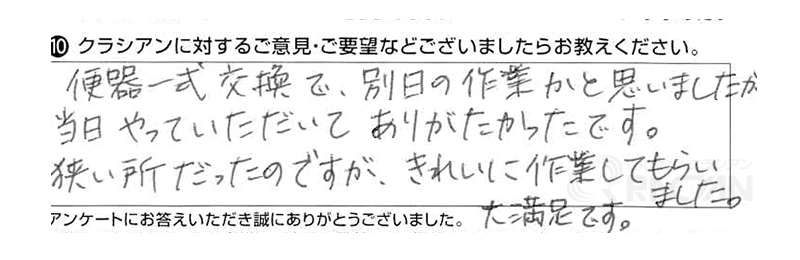 ⑩ クラシアンに対するご意見・ご要望などございましたらお教えください。
便器一式交換で、別日の作業かと思いましたが
当日やっていただいてありがたかったです。
狭い所だったのですが、きれいに作業してもらい
ました。
アンケートにお答えいただき誠にありがとうございました。 大満足です。